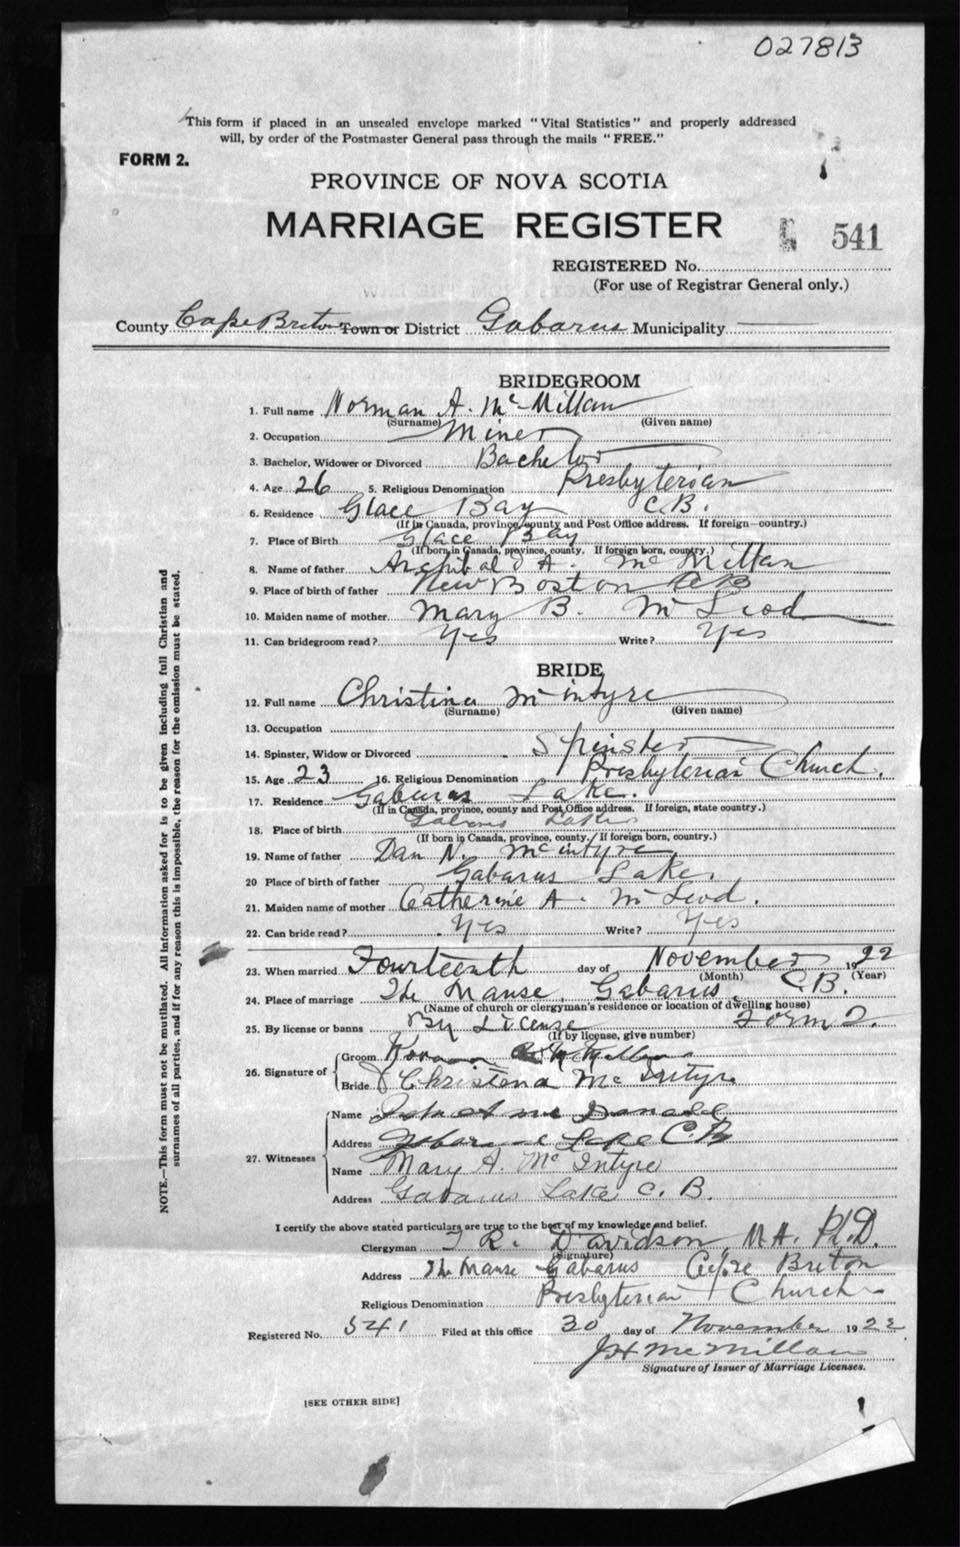 027813
This form if placed in an unsealed envelope marked "Vital Statistics" and properly addressed
will, by order of the Postmaster General pass through the mails "FREE."
FORM 2.
PROVINCE OF NOVA SCOTIA
MARRIAGE REGISTER
541
REGISTERED No.
(For use of Registrar General only.)
County Cape Breton Town or District Gabarus Municipality
BRIDEGROOM
1. Full name Norman A. McMillan
(Surname) (Given name)
2. Occupation Miner
3. Bachelor, Widower or Divorced Bachelor
4. Age 26 5. Religious Denomination Presbyterian
6. Residence Glace Bay C.B.
(If in Canada, province, county and Post Office address. If foreign—country.)
7. Place of Birth Glace Bay
(If born in Canada, province, county. If foreign born, country.)
8. Name of father Archibald A. McMillan
9. Place of birth of father New Boston CB
10. Maiden name of mother Mary B. McLeod
11. Can bridegroom read? Yes Write? Yes
BRIDE
12. Full name Christina McIntyre
(Surname) (Given name)
13. Occupation
14. Spinster, Widow or Divorced Spinster
15. Age 23 16. Religious Denomination Presbyterian Church.
17. Residence Gabarus Lake.
(If in Canada, province, county and Post Office address. If foreign, state country.)
18. Place of birth Gabarus Lake
(If born in Canada, province, county. If foreign born, country.)
19. Name of father Dan N. McIntyre
20 Place of birth of father Gabarus Lake.
21. Maiden name of mother Catherine A. McLeod.
22. Can bride read? Yes Write? Yes
23. When married Fourteenth day of November 1922
(Month) (Year)
24. Place of marriage The Manse, Gabarus, C.B.
(Name of church or clergyman's residence or location of dwelling house)
25. By license or banns By License Form 2.
(If by license, give number)
26. Signature of
Groom Norman McMillan
Bride Christena McIntyre
27. Witnesses
Name McDonald
Address Gabarus Lake C.B.
Name Mary A. McIntyre
Address Gabarus Lake C.B.
I certify the above stated particulars are true to the best of my knowledge and belief.
Clergyman R. Davidson M.A. Ph.D.
(Signature)
Address The Manse Gabarus Cape Breton
Religious Denomination Presbyterian Church
Registered No. 541 Filed at this office 30 day of November 1922
JH McMillan
Signature of Issuer of Marriage Licenses.
[SEE OTHER SIDE]
NOTE.—This form must not be mutilated. All information asked for is to be given including full Christian and
surnames of all parties, and if for any reason this is impossible, the reason for the omission must be stated.